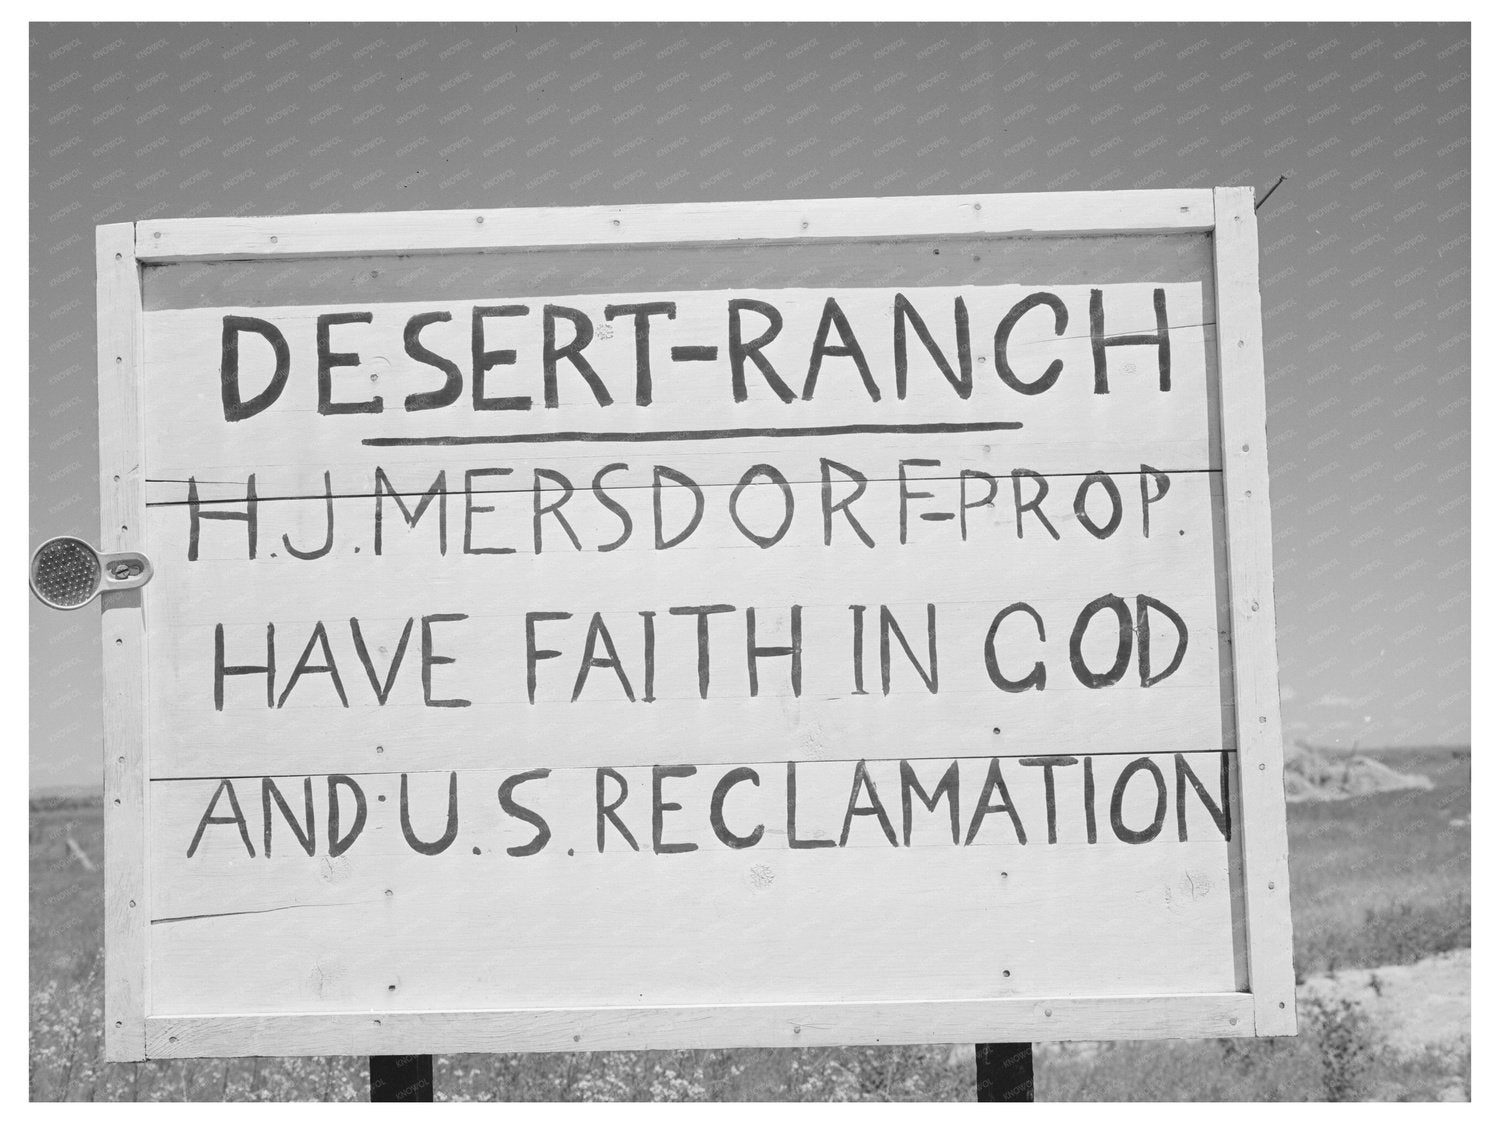 DESERT-RANCH
H.J. MERSDORF-PROP.
HAVE FAITH IN GOD
AND·U.S. RECLAMATION